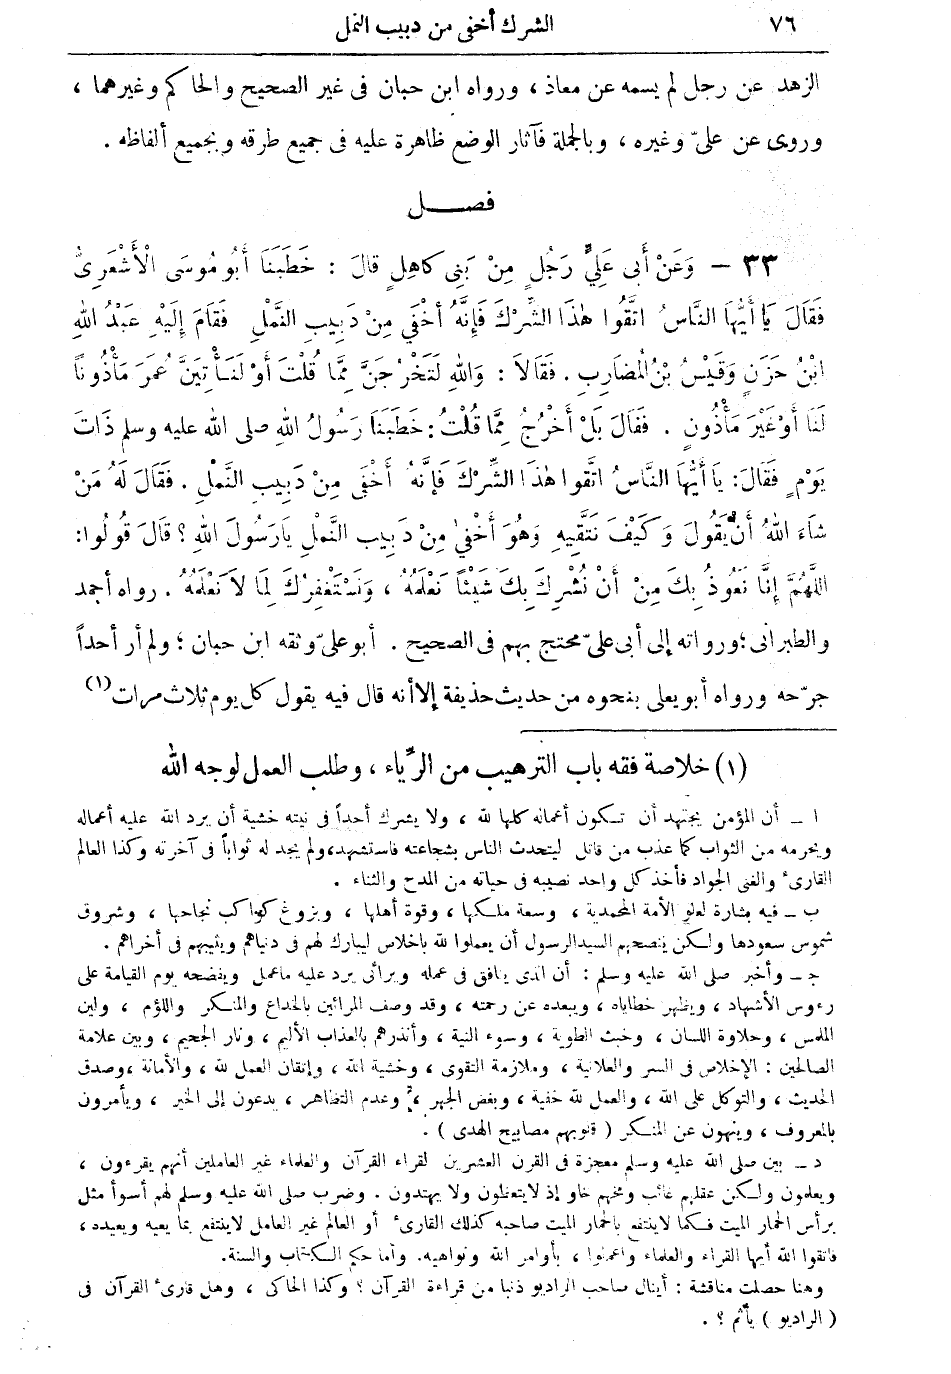 ٧٦ الشرك أخفى من دبيب النمل
الزهد عن رجل لم يسمه عن معاذ ، ورواه ابن حبان فى غير الصحيح والحاكم وغيرهما ،
وروى عن علىّ وغيره ، وبالجملة فآثار الوضع ظاهرة عليه فى جميع طرقه وبجميع ألفاظه .
فصــــل
٣٣ — وَعَنْ أَبى عَلِيٍّ رَجُلٍ مِنْ بَنِى كاهِلٍ قالَ : خَطَبَنَا أَبُو مُوسَى الْأَشْعَرِىُّ
فَقَالَ يَا أَيُّهَا النَّاسُ اتَّقُوا هٰذَا الشِّرْكَ فَإِنَّهُ أَخْفَي مِنْ دَبِيبِ النَّمْلِ فَقَامَ إِلَيْهِ عَبْدُ اللهِ
ابْنُ حَزَنٍ وَقَيْسُ بْنُ الْمُضَارِبِ . فَقَالَا : وَاللهِ لَتَخْرُجَنَّ مِمَّا قُلْتَ أَوْ لَنَأْتِيَنَّ عُمَرَ مَأْذُونًا
لَنَا أَوْ غَيْرَ مَأْذُونٍ . فَقَالَ بَلْ أَخْرُجُ مِمَّا قُلْتُ : خَطَبَنَا رَسُولُ اللهِ صلى الله عليه وسلم ذَاتَ
يَوْمٍ فَقَالَ: يَا أَيُّهَا النَّاسُ اتَّقُوا هٰذَا الشِّرْكَ فَإِنَّهُ أَخْفَى مِنْ دَبِيبِ النَّمْلِ . فَقَالَ لَهُ مَنْ
شَاءَ اللهُ أَنْ يَقُولَ وَكَيْفَ نَتَّقِيهِ وَهُوَ أَخْفىٰ مِنْ دَبِيبِ النَّمْلِ يَارَسُولَ اللهِ ؟ قَالَ قُولُوا :
اللَّهُمَّ إِنَّا نَعُوذُ بِكَ مِنْ أَنْ نُشْرِكَ بِكَ شَيْئًا نَعْلَمُهُ ، وَنَسْتَغْفِرُكَ لِمَا لَا نَعْلَمُهُ . رواه أحمد
والطبرانى ؛ ورواته إلى أبى علىّ محتج بهم فى الصحيح . أبو علىّ وثقه ابن حبان ؛ ولم أر أحداً
جرّحه ورواه أبو يعلى بنحوه من حديث حذيفة إلا أنه قال فيه يقول كل يوم ثلاث مرات (١)
(١) خلاصة فقه باب الترهيب من الرِّياء ، وطلب العمل لوجه الله
ا – أن المؤمن يجتهد أن تكون أعماله كلها لله ، ولا يشرك أحداً فى نيته خشية أن يرد الله عليه أعماله
ويحرمه من الثواب كما عذب من قاتل ليتحدث الناس بشجاعته فاستشهد، ولم يجد له ثواباً فى آخرته وكذا العالم
القارىء والغنى الجواد فأخذ كل واحد نصيبه فى حياته من المدح والثناء .
ب – فيه بشارة لعلو الأمة المحمدية ، وسعة ملكها ، وقوة أهلها ، وبزوغ كواكب نجاحها ، وشروق
شموس سعودها ولكن ينصحهم السيد الرسول أن يعملوا لله باخلاس ليبارك لهم فى دنياهم ويثيبهم فى أخراهم .
جـ – وأخبر صلى الله عليه وسلم : أن الذى ينافق فى عمله ويرائى يرد عليه ماعمل ويفضحه يوم القيامة على
رءوس الأشهاد ، ويظهر خطاياه ، ويبعده عن رحمته ، وقد وصف المرائين بالخداع والمنكر واللؤم ، ولين
الملمس ، وحلاوة اللسان ، وخبث الطوية ، وسوء النية ، وأنذرهم بالعذاب الأليم ، ونار الجحيم ، وبين علامة
الصالحين : الإخلاص فى السر والعلانية ، وملازمة التقوى ، وخشية الله ، وإتقان العمل لله ، والأمانة ،وصدق
الحديث ، والتوكل على الله ، والعمل لله خفية ، وبغض الجهر ، وعدم التظاهر ، يدعون إلى الخير ، ويأمرون
بالمعروف ، وينهون عن المنكر ( قلوبهم مصابيح الهدى ) .
د – بين صلى الله عليه وسلم معجزة فى القرن العشرين لقراء القرآن والعلماء غير العاملين أنهم يقرءون ،
ويعلمون ولكن عقلهم غائب ومخهم خاو إذ لايتعظون ولا يهتدون . وضرب صلى الله عليه وسلم لهم أسوأ مثل
برأس الحمار الميت فكما لاينتفع بالحمار الميت صاحبه كذلك القارىء أو العالم غير العامل لاينتفع بما يعيه ويعيده ،
فاتقوا الله أيها القراء والعلماء واعملوا ، بأوامر الله ونواهيه. وأما حكم الكتاب والسنة.
وهنا حصلت مناقشة : أينال صاحب الراديو ذنبا من قراءة القرآن ؟ وكذا الحاكى ، وهل قارىء القرآن فى
( الراديو ) يأثم ؟ .